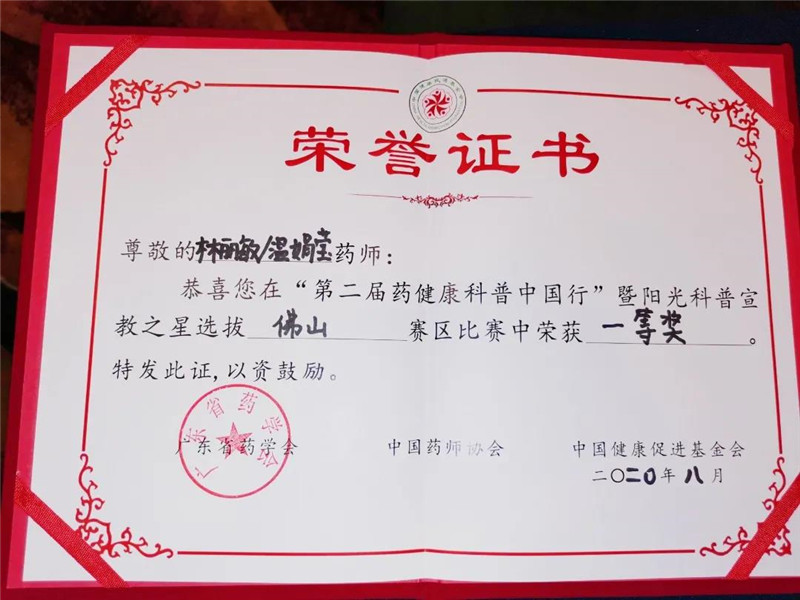 荣誉证书
尊敬的林丽敏/温娟莹药师：
恭喜您在“第二届药健康科普中国行”暨阳光科普宣
教之星选拔 佛山 赛区比赛中荣获 一等奖 。
特发此证,以资鼓励。
广东省药学会 中国药师协会 中国健康促进基金会
二〇二〇年八月
广东省药学会